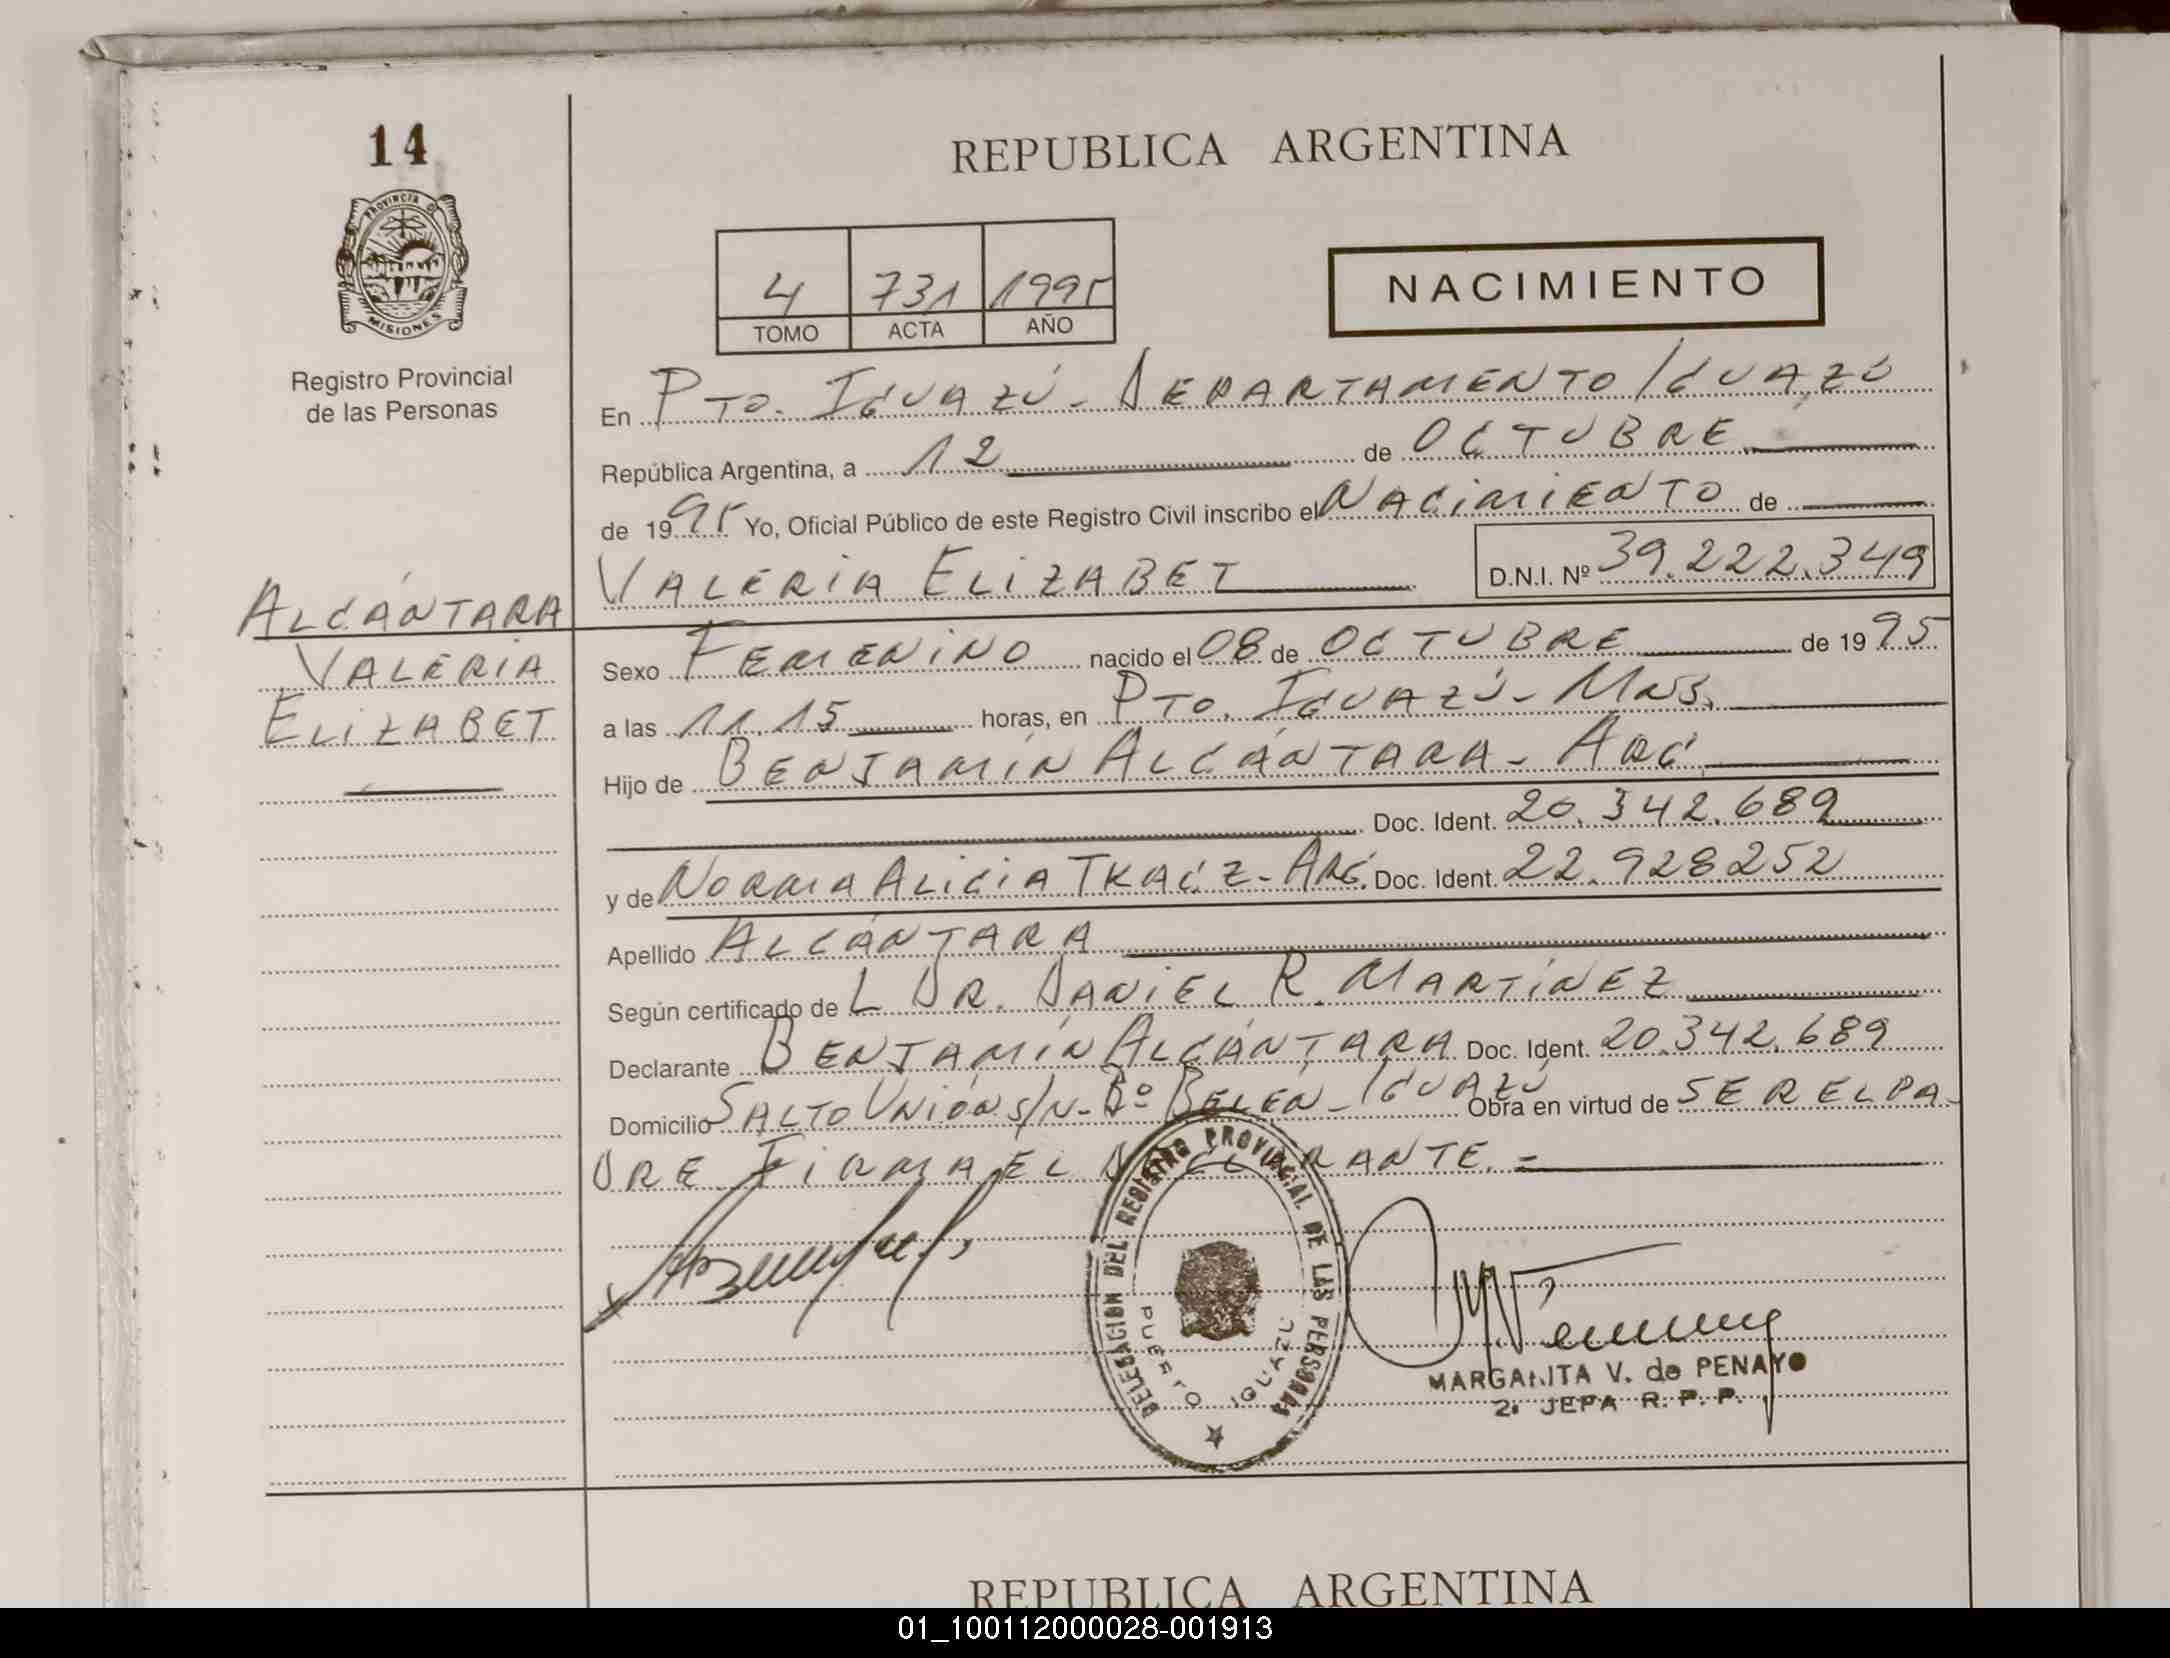 14
PROVINCIA DE
MISIONES
Registro Provincial
de las Personas
ALCÁNTARA
VALERIA
ELIZABET
REPUBLICA ARGENTINA
4 731 1995
TOMO ACTA AÑO
NACIMIENTO
En PTO. IGUAZÚ - DEPARTAMENTO IGUAZÚ
República Argentina, a 12 de OCTUBRE
de 1995 Yo, Oficial Público de este Registro Civil inscribo el NACIMIENTO de
VALERIA ELIZABET D.N.I. Nº 39.222.349
Sexo FEMENINO nacido el 08 de OCTUBRE de 1995
a las 11.15 horas, en PTO. IGUAZÚ - MNS.
Hijo de BENJAMÍN ALCÁNTARA - ARG.
Doc. Ident. 20.342.689
y de NORMA ALICIA TKACZ - ARG. Doc. Ident. 22.928.252
Apellido ALCÁNTARA
Según certificado de L DR. DANIEL R. MARTÍNEZ
Declarante BENJAMÍN ALCÁNTARA Doc. Ident. 20.342.689
Domicilio SALTO UNIÓN S/N - Bº BELÉN - IGUAZÚ Obra en virtud de SER EL PA-
DRE FIRMA EL DECLARANTE. -
DELEGACION DEL REGISTRO PROVINCIAL DE LAS PERSONAS
PUERTO IGUAZU
MARGARITA V. de PENAYO
2. JEFA R. P. P.
REPUBLICA ARGENTINA
01_100112000028-001913